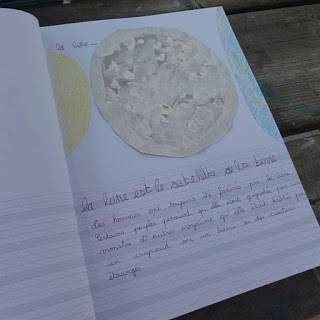 La lune
La lune est le satellite de la terre
Les hommes ont toujours été fascinés par la lune
Certains peuples pensaient qu'elle était gouvernée par un
monstre. D'autres croyaient qu'elle était habitée par
un crapaud ou un lièvre ou des créatures
étranges.